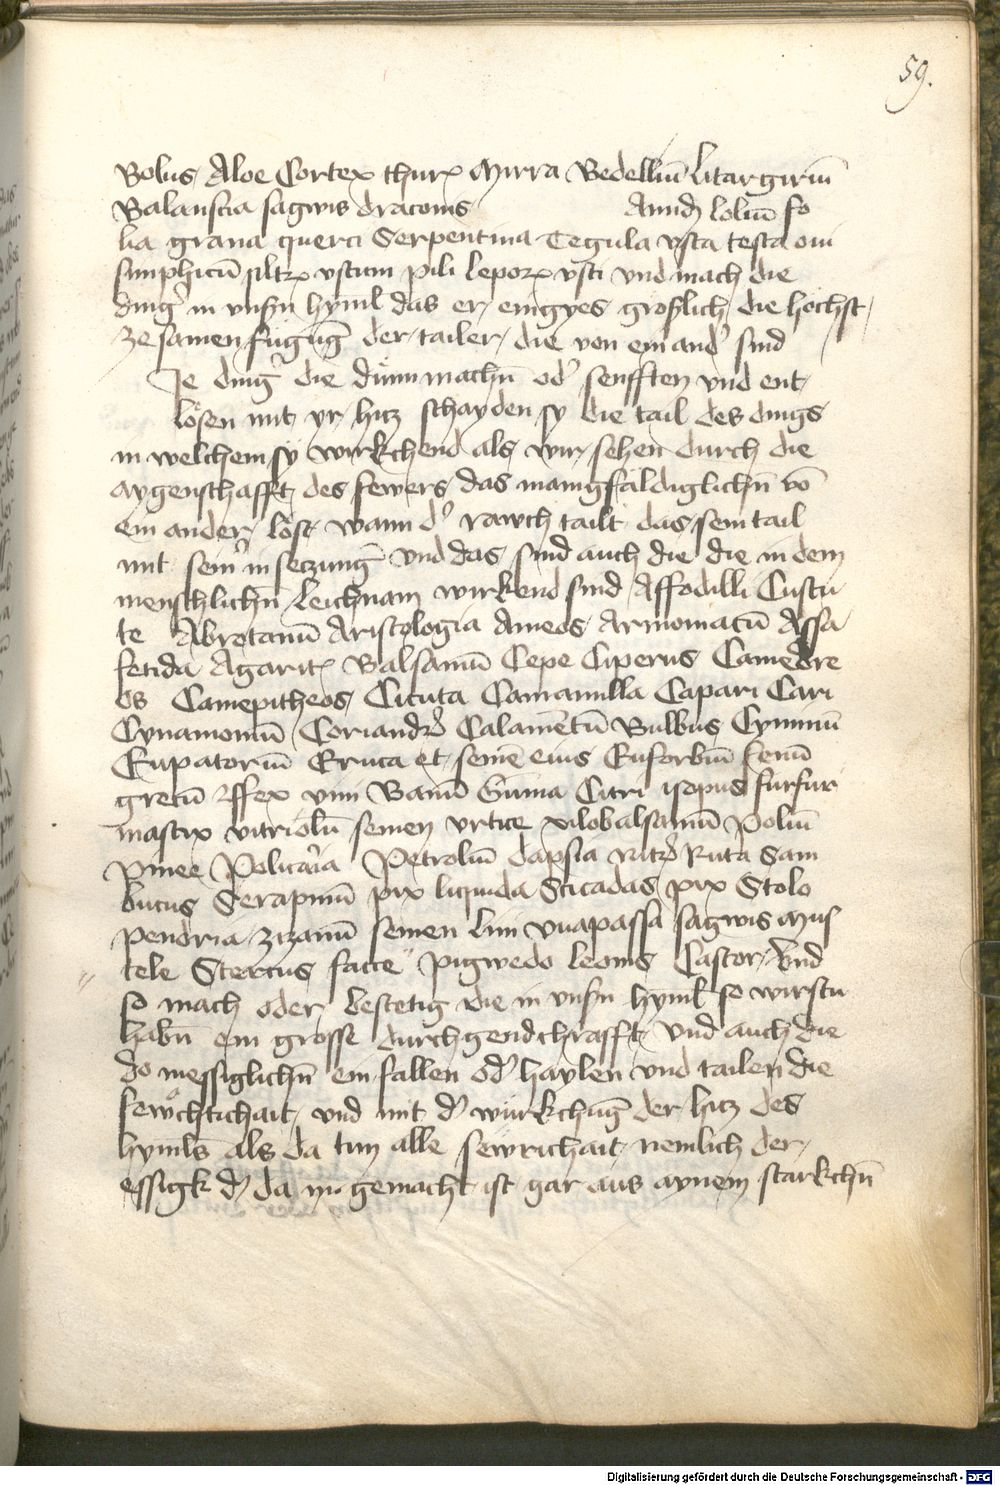 59.
Bolus Aloe Cortex thurꝝ Mirra Bedelliū litargiriū
Balaustia sagwis draconis Amidꝫ loliū fo
lia grana querci Serpentina Tegula vsta testa oui
simphicū filtrꝝ vstum pili leporꝝ vsti vnd mach die
ding in vnsn hyml das er eingyes groslich die hochst
ze samen fugūg der tailer die von ein andʼ sind
Je ding die dünn machn̄ odʼ senfften vnd ent
lösen mit yr hitz schayden sy die tail des dings
in welchem sy würkchend als wir sehen durch die
aygenschafft des fewers das manigfaldiglichn̄ vō
ein ander löst wann dʼ rawch tailt das sein tail
mit seinʼ in seczunḡ vnd das sind auch die die in dem
menschlichn̄ leichnam wirkend sind Affodilli Cuscu
te Abrotanū Aristologia Ameos Armoniacū Assa
fetida Agaritꝫ Balsamū Cepe Ciperus Camedre
os Camepitheos Cicuta Camamilla Capari Cari
Cynamomū Coriandrꝫ Calamētū Bulbus Cyminū
Eupatoriū Eruca et semē eius Euforbiū fenū
grecū ffex vini Banū Gūma Citri isopus furfur
mastix vitriolū semen vrtice xilobalsamū Poliū
pinee Policaria Petroliū dapsia nitrꝫ Ruta Sam
bucus Serapinū pix liquida Sticadas pix Stolo
pendria zizaniū semen lini vuapassa sagwis Mus
tele Stercus facte pigwedo leonis Castor Vnd
so mach oder bestetig die in vnsn hyml so wirstu
habn̄ ein grosse durchgend chrafft vnd auch die
do messiglichn̄ ein fallen odʼ haylen vnd tailen die
fewchtichait vnd mit dʼ würkchūg der hitz des
hymls als da tun alle sewrichait nemlich der
essigk dʼ da in gemacht ist gar aus aynem starkchn̄
Digitalisierung gefördert durch die Deutsche Forschungsgemeinschaft - DFG